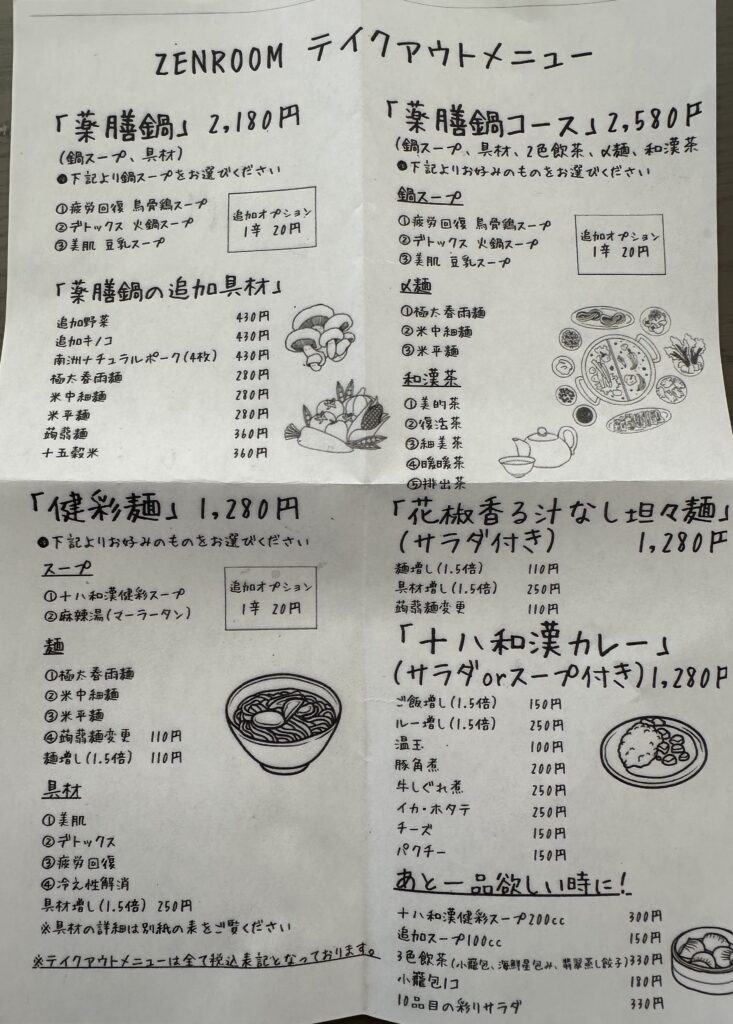 ZENROOM テイクアウトメニュー
「薬膳鍋」 2,180円
(鍋スープ、具材)
●下記より鍋スープをお選びください
①疲労回復 烏骨鶏スープ
②デトックス 火鍋スープ
③美肌 豆乳スープ
追加オプション
1辛 20円
「薬膳鍋の追加具材」
追加野菜 430円
追加キノコ 430円
南洲ナチュラルポーク(4枚) 430円
極太春雨麺 280円
米中細麺 280円
米平麺 280円
蒟蒻麺 360円
十五穀米 360円
「薬膳鍋コース」2,580円
(鍋スープ、具材、2色飲茶、〆麺、和漢茶
●下記よりお好みのものをお選びください
鍋スープ
①疲労回復 烏骨鶏スープ
②デトックス 火鍋スープ
③美肌 豆乳スープ
追加オプション
1辛 20円
〆麺
①極太春雨麺
②米中細麺
③米平麺
和漢茶
①美的茶
②復活茶
③細美茶
④暖暖茶
⑤排出茶
「健彩麺」 1,280円
●下記よりお好みのものをお選びください
スープ
①十八和漢健彩スープ
②麻辣湯(マーラータン)
追加オプション
1辛 20円
麺
①極太春雨麺
②米中細麺
③米平麺
④蒟蒻麺変更 110円
麺増し(1.5倍) 110円
具材
①美肌
②デトックス
③疲労回復
④冷え性解消
具材増し(1.5倍) 250円
※具材の詳細は別紙の表をご覧ください
※テイクアウトメニューは全て税込表記となっております。
「花椒香る汁なし坦々麺」
(サラダ付き) 1,280円
麺増し(1.5倍) 110円
具材増し(1.5倍) 250円
蒟蒻麺変更 110円
「十八和漢カレー」
(サラダorスープ付き)1,280円
ご飯増し(1.5倍) 150円
ルー増し(1.5倍) 250円
温玉 100円
豚角煮 200円
牛しぐれ煮 250円
イカ・ホタテ 250円
チーズ 150円
パクチー 150円
あと一品欲しい時に!
十八和漢健彩スープ200cc 300円
追加スープ100cc 150円
3色飲茶(小籠包、海鮮星包み、翡翠蒸し餃子)330円
小籠包1コ 180円
10品目の彩りサラダ 330円